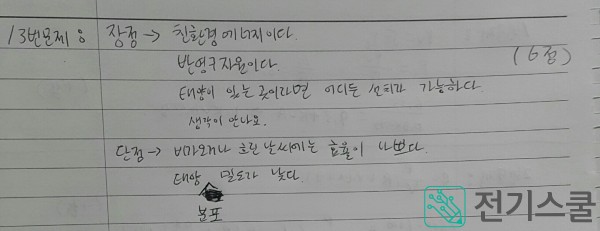 13번문제 : 장점 → 친환경에너지이다.
반영구자원이다.
(6점)
태양이 있는 곳이라면 어디든 설치가 가능하다.
생각이 안나요.
단점 → 비가오거나 흐린 날씨에는 효율이 나쁘다.
태양 밀도가 낮다.
분포
전기스쿨